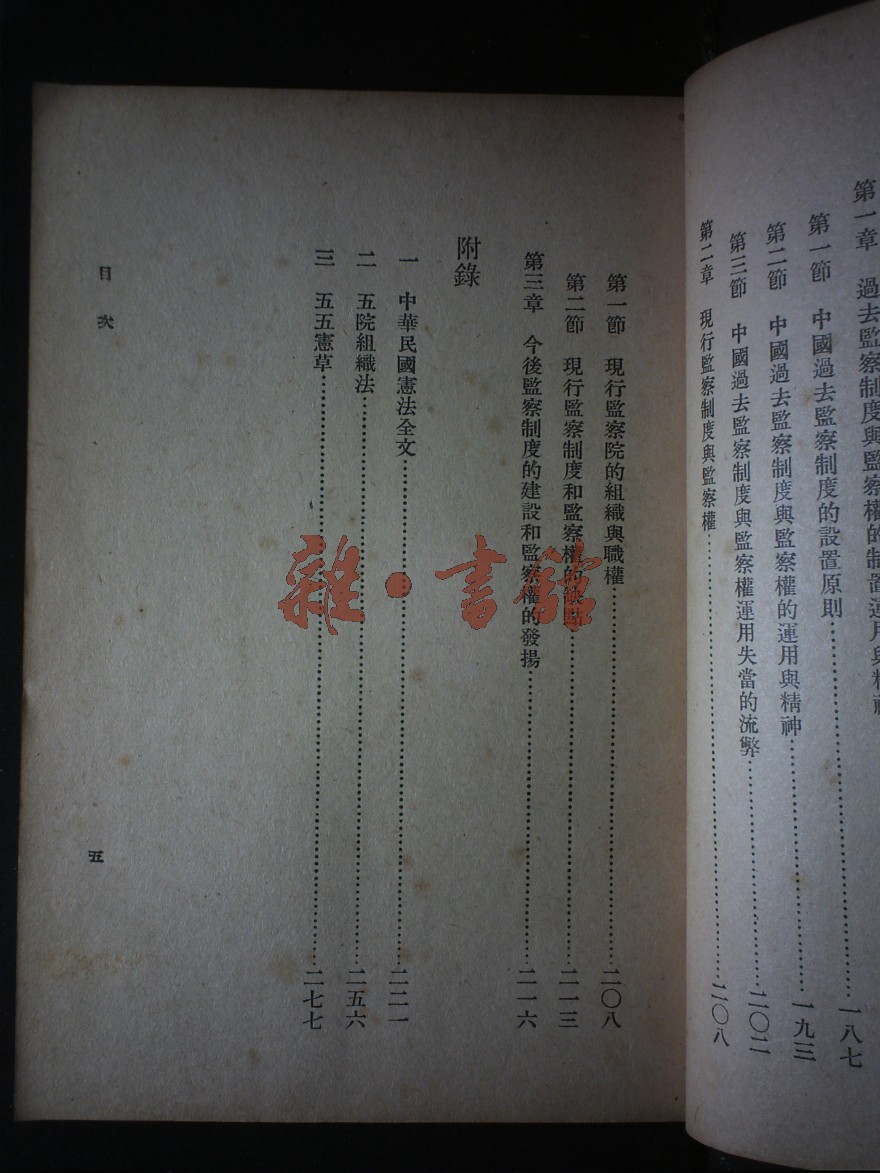 第一章　過去監察制度與監察權的制置運用與精神
第一節　中國過去監察制度的設置原則……一八七
第二節　中國過去監察制度與監察權的運用與精神……一九三
第三節　中國過去監察制度與監察權運用失當的流弊……二〇二
第二章　現行監察制度與監察權……二〇八
第一節　現行監察院的組織與職權……二〇八
第二節　現行監察制度和監察權的缺點……二一三
第三章　今後監察制度的建設和監察權的發揚……二一六
附錄
一　中華民國憲法全文……二二一
二　五院組織法……二五六
三　五五憲草……二七七
目次
五
雜·書館